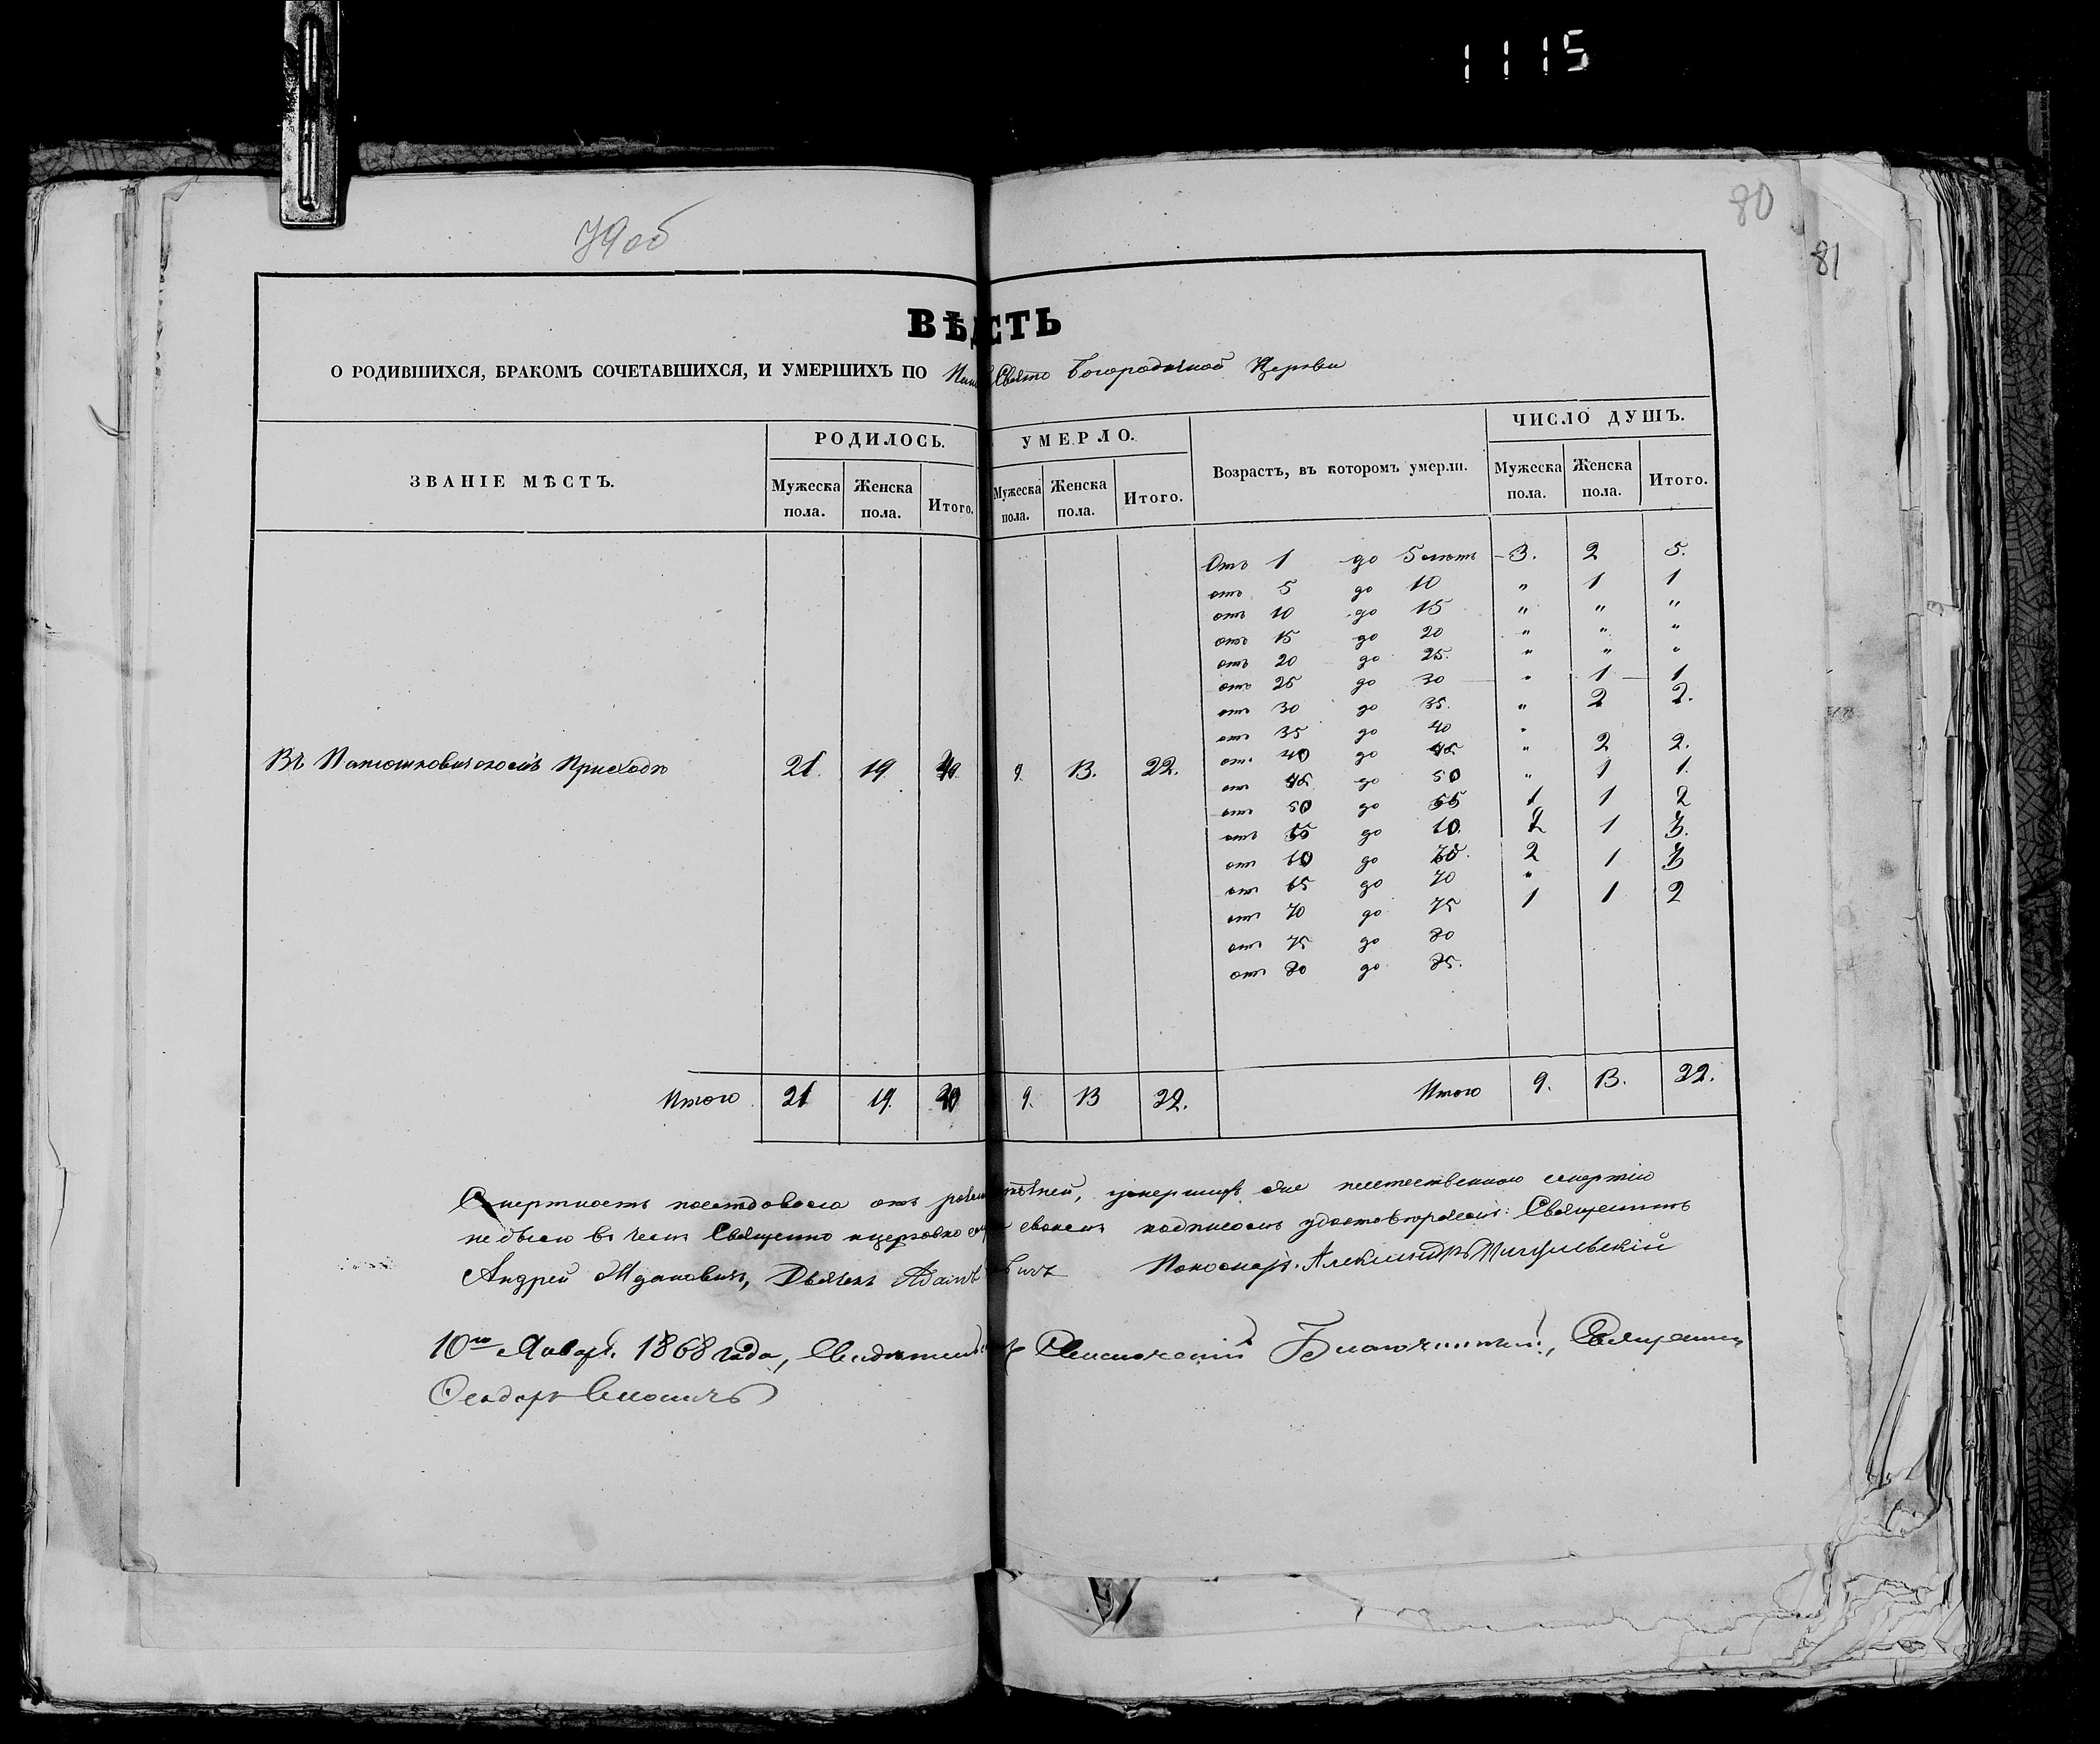 1115
79 об
80
81
ВѢСТЬ
О РОДИВШИХСЯ, БРАКОМЪ СОЧЕТАВШИХСЯ, И УМЕРШИХЪ ПО Свято Богородичной Церкви
ЗВАНІЕ МѢСТЪ.
РОДИЛОСЬ.
Мужеска пола.
Женска пола.
Итого.
УМЕРЛО.
Мужеска пола.
Женска пола.
Итого.
Возрастъ, въ которомъ умерли.
ЧИСЛО ДУШЪ.
Мужеска пола.
Женска пола.
Итого.
Отъ 1 до 5 лѣтъ 3. 2 5.
отъ 5 до 10 " 1 1
отъ 10 до 15 " " "
отъ 15 до 20 " " "
отъ 20 до 25. " " "
отъ 25 до 30 " 1 1
отъ 30 до 35. " 2 2.
отъ 35 до 40 "
отъ 40 до 45 " 2 2.
отъ 45 до 50 " 1 1.
отъ 50 до 55 1 1 2
отъ 55 до 60. 2 1 3.
отъ 60 до 65. 2 1 3
отъ 65 до 70 "
отъ 70 до 75 1 1 2
отъ 75 до 80
отъ 80 до 85.
Въ Приходѣ 21. 19. 40. 9. 13. 22.
Итого 21 19. 40 9. 13 22.
Итого 9. 13. 22.
Смертность послѣдовала отъ умершихъ не неестественною смертію
не было въ чемъ Священно и церковно своимъ подписомъ удостовѣряемъ: Священникъ
Андрей Ждановичъ, Дьячекъ Адамъ Пономарь Александръ
10го Январ. 1868 года, Благочинный, Священник
Феодоръ